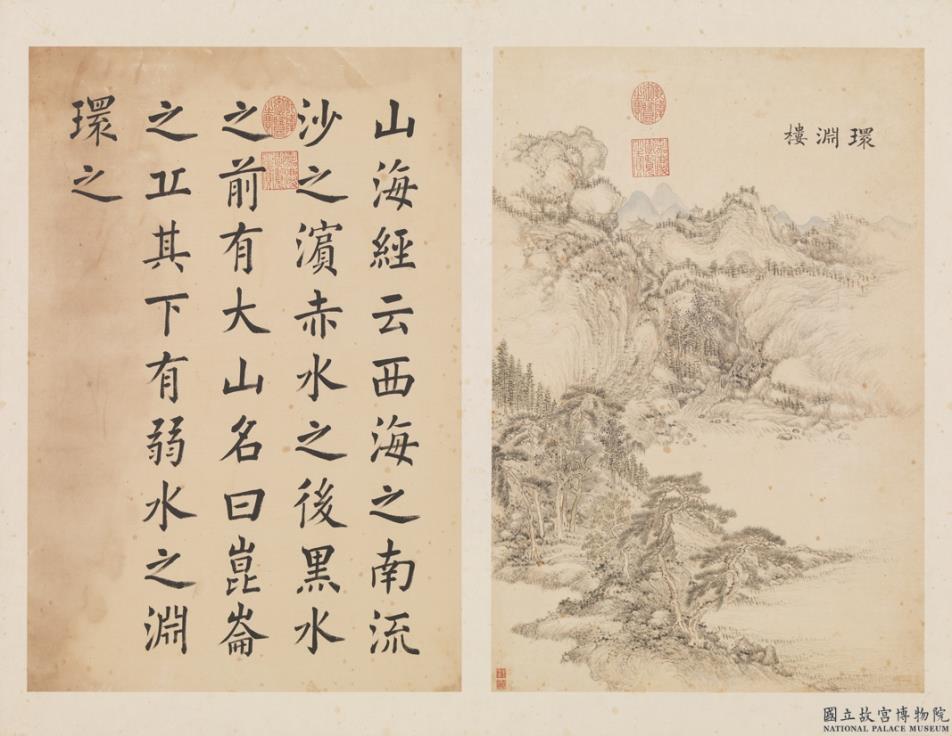 環淵樓
山海經云西海之南流
沙之濱赤水之後黑水
之前有大山名曰崑崙
之丘其下有弱水之淵
環之
國立故宮博物院
NATIONAL PALACE MUSEUM